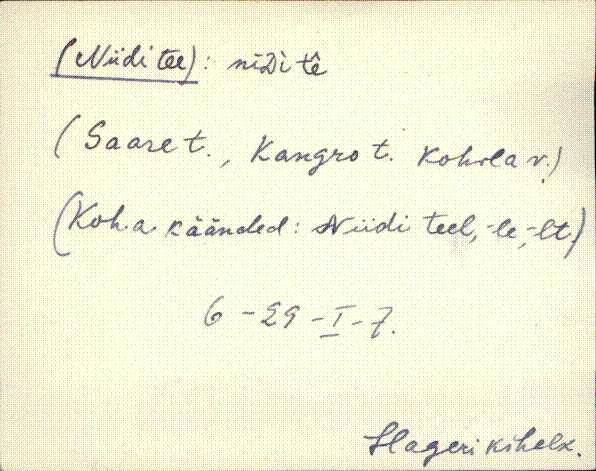 (Niidi tee): nīᴅi tē̂
(Saare t., Kangro t. Kohila v.)
(Koh.a. käänded: Niidi teel, -le, -lt.)
6 - 29 - I - 7.
Hageri kihelk.